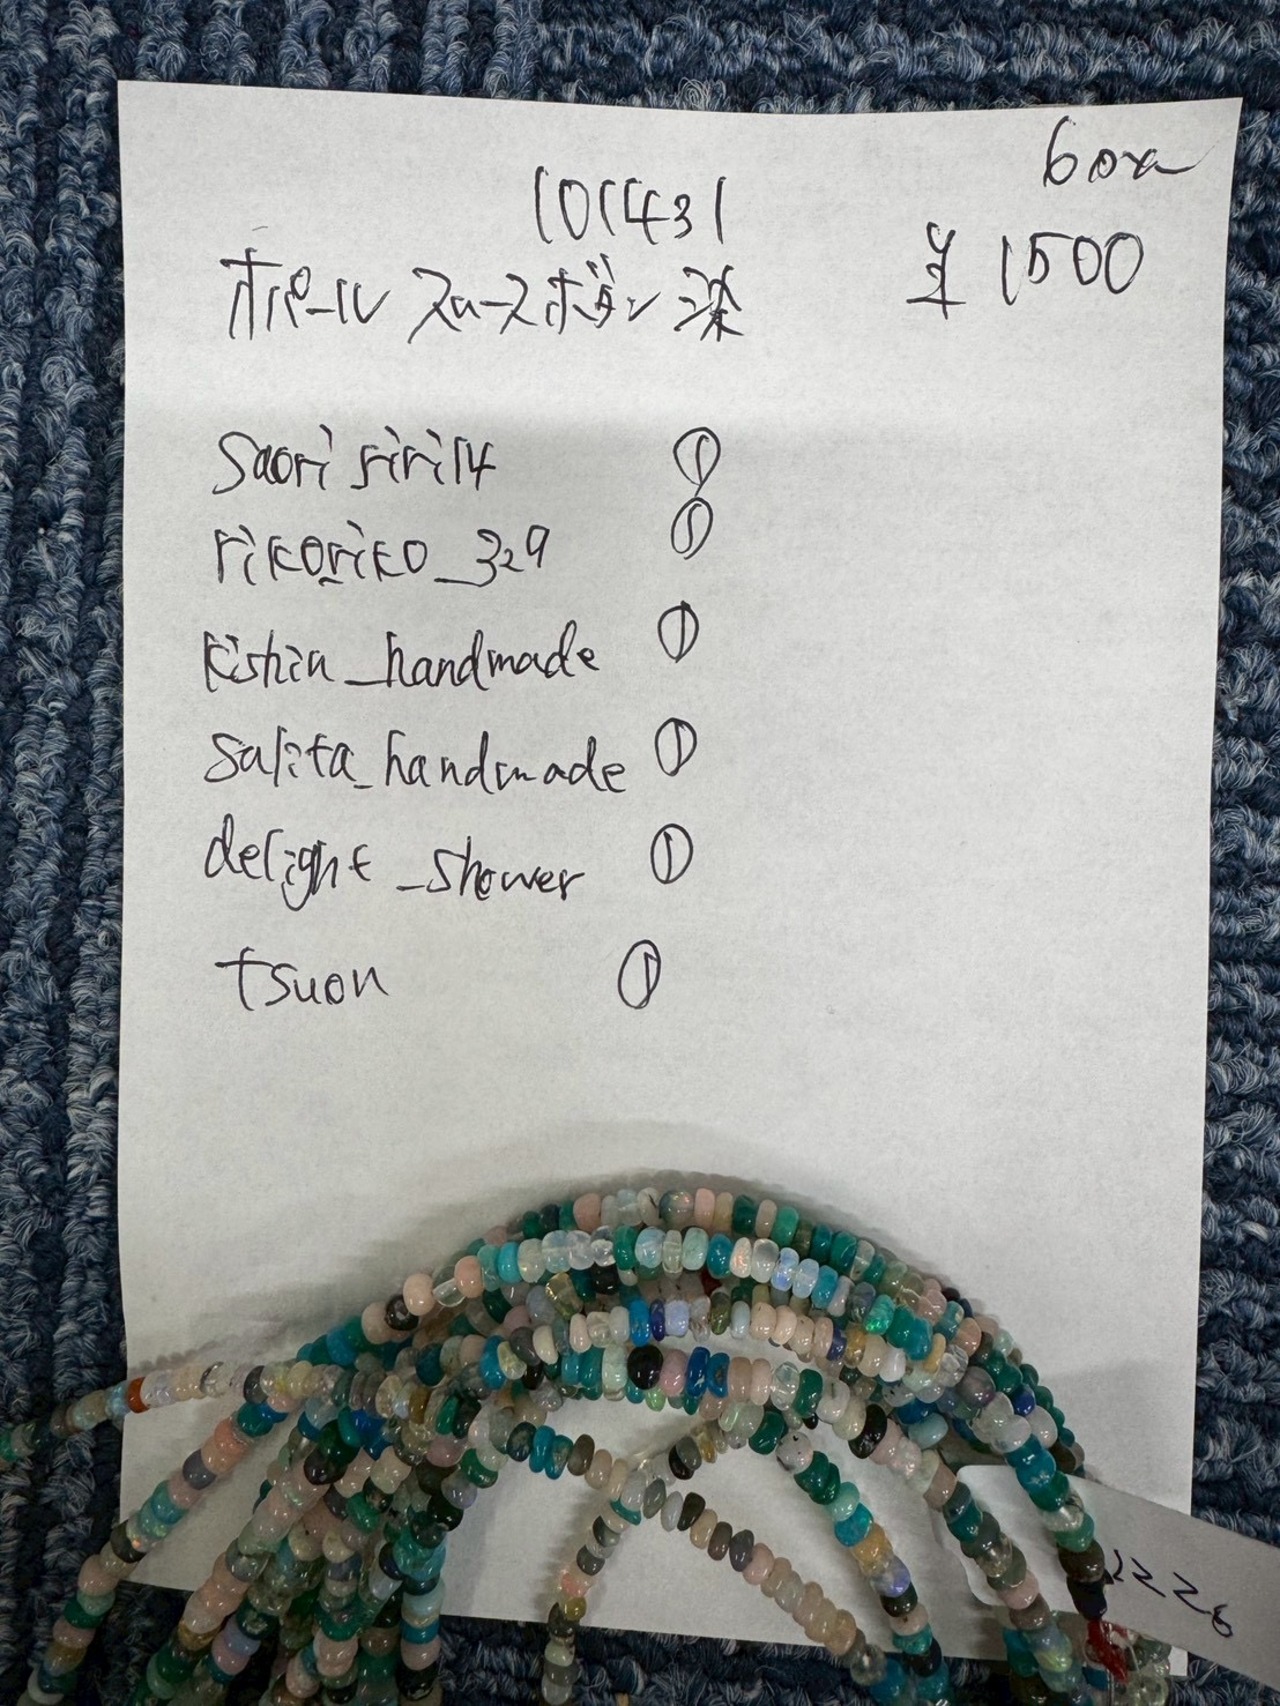 60x
101431
¥1500
オパール スムースボタン 染
saori siri14
rikoriko_329
kishin_handmade
salita_handmade
delight_shower
tsuon
①
①
①
①
①
①